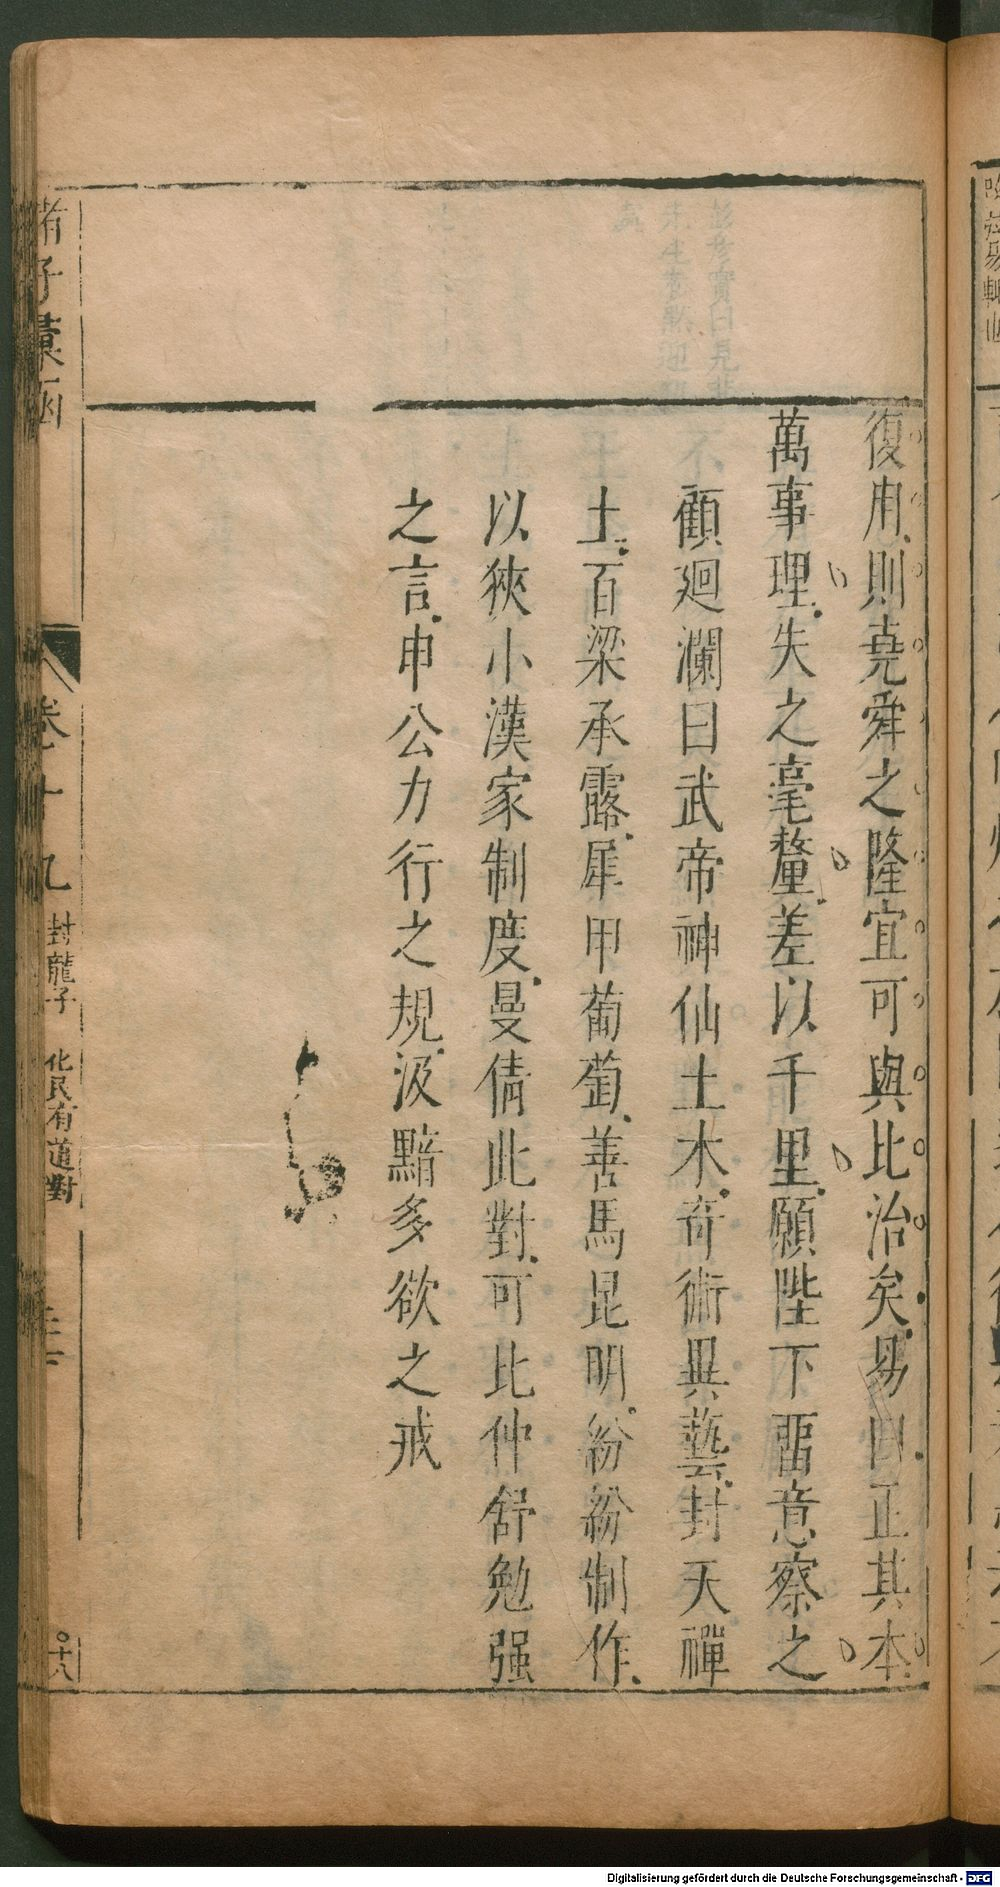 復用則堯舜之隆宜可與比治矣易曰正其本
萬事理失之毫釐差以千里願陛下畱意察之
顧迴瀾曰武帝神仙土木奇術異藝封天禪
土百梁承露犀甲葡萄善馬昆明紛紛制作
以狹小漢家制度曼倩此對可比仲舒勉强
之言申公力行之規汲黯多欲之戒
諸子彙函
卷十九
封龍子
化民有道對
十八
Digitalisierung gefördert durch die Deutsche Forschungsgemeinschaft - DFG